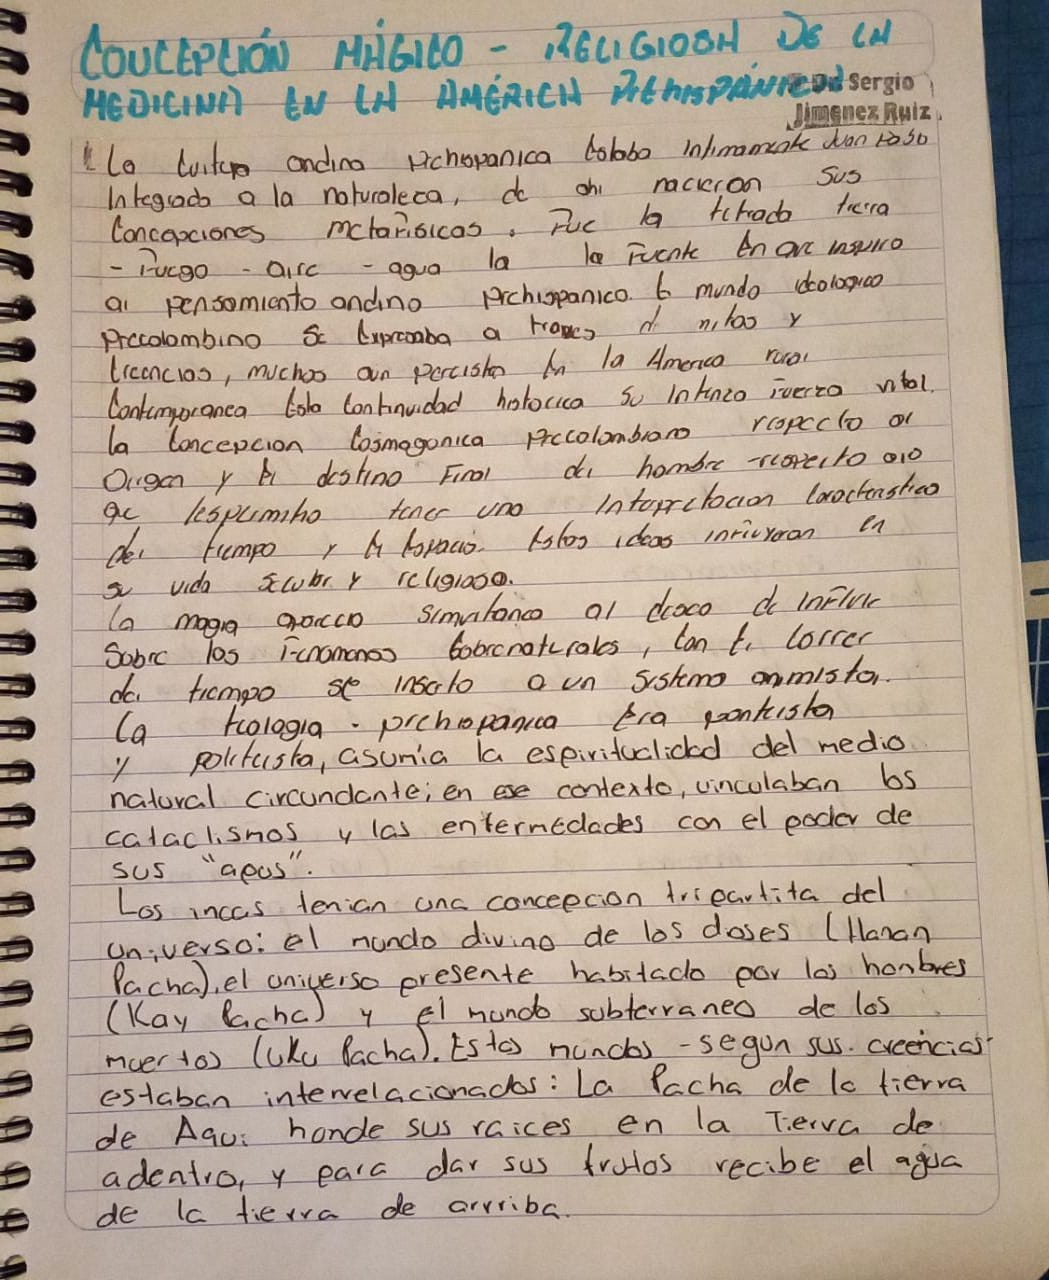 CONCEPCIÓN MÁGICO - RELIGIOSA DE LA
MEDICINA EN LA AMÉRICA PREHISPÁNICA
Dr. Sergio
Jimenez Ruiz
La andina prehispanica estaba intimamente
Integrada a la naturaleza, de ahi nacieron sus
Concepciones metafisicas. Fue la tetrada tierra
- Fuego - aire - agua la la Fuente en que inspiro
al pensamiento andino prehispanico. El mundo ideologico
precolombino se expresaba a traves d ritos y
creencias, muchos aun persisten en la America rural
Contemporanea esta continuidad historica su intenzo fuerza vital.
la concepcion cosmogonica precolombiano respecto al
Origen y el destino Final del hombre respecto
que tener una interpretacion caracteristica
del tiempo y el espacio. Estas ideas influyeron en
su vida secular y religiosa.
la magia aparecio simultanea al deseo de influir
Sobre los Fenomenos Sobrenaturales, con el correr
del tiempo se inserto a un sistema animista.
La teologia - prehispanica era panteista
y politeista, asumía la espiritualidad del medio
natural circundante; en ese contexto, vinculaban los
cataclismos y las enfermedades con el poder de
sus "apus".
Los incas tenian una concepcion tripartita del
universo: el mundo divino de los dioses (Hanan
Pacha), el universo presente habitado por los hombres
(Kay Pacha) y el mundo subterraneo de los
muertos (uku Pacha). Estos mundos - segun sus creencias
estaban interrelacionados: La Pacha de la tierra
de Aqui honde sus raices en la Tierra de
adentro, y para dar sus frutos recibe el agua
de la tierra de arrriba.